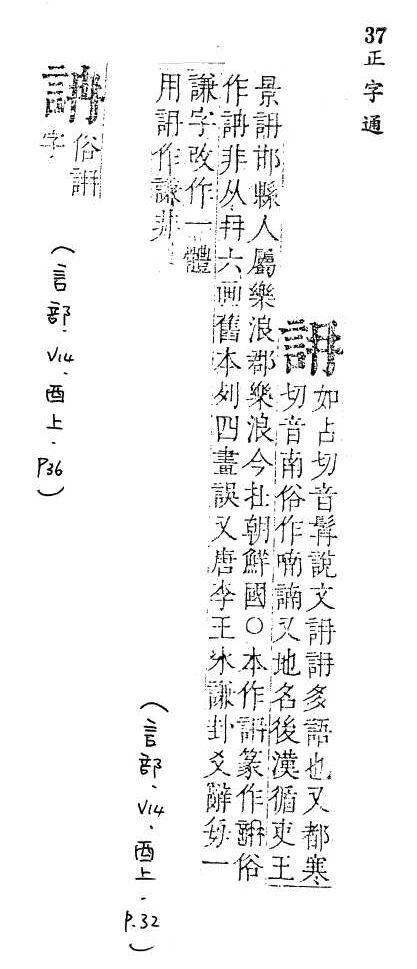 37
正字通
䛁
如占切音髯說文䛁䛁多語也又都寒
切音南俗作喃諵又地名後漢循吏王
景䛁邯縣人屬樂浪郡樂浪今在朝鮮國○本作䛁篆作俗
作非从冄六画舊本列四畫誤又唐李王氷謙卦爻辭每一
謙字改作一體
用䛁作謙非
(言部.V14.酉上.P.32)
俗䛁
字
(言部.V14.酉上.P36)